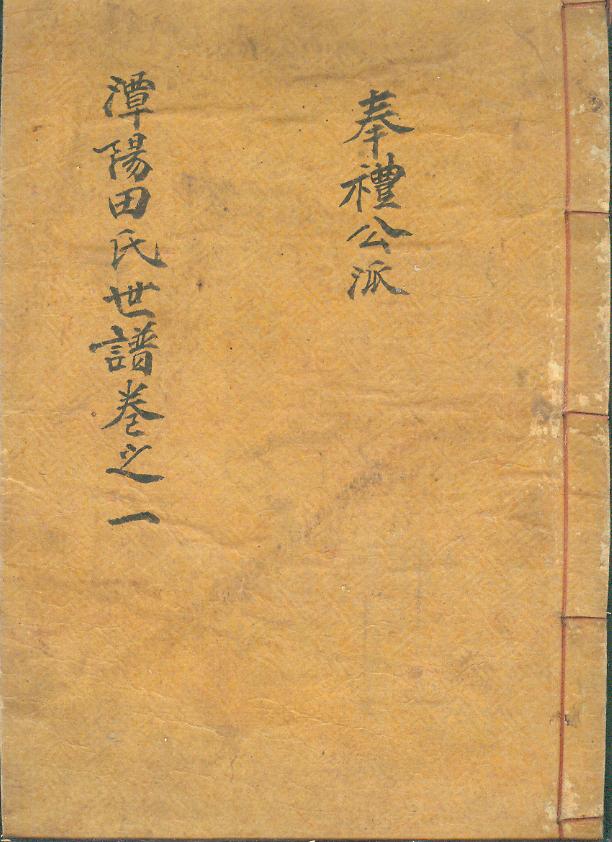 奉禮公派
潭陽田氏世譜卷之一